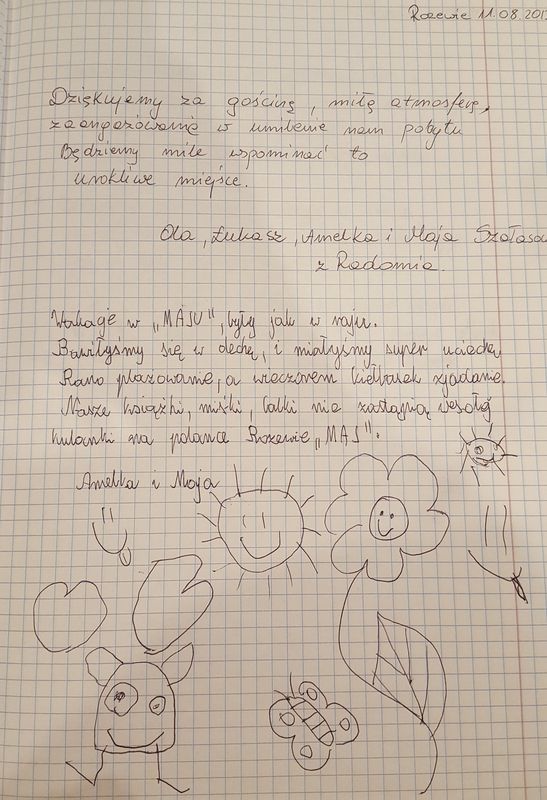 Rozewie 11.08.201
Dziękujemy za gościnę, miłą atmosferę,
zaangażowanie w umilenie nam pobytu
Będziemy mile wspominać to
urokliwe miejsce.
Ola, Łukasz, Amelka i Maja
z Radomia.
Wakacje w „MAJU", były jak w raju.
Bawiłyśmy się w dechę, i miałyśmy super uciechę
Rano plażowanie, a wieczorem kiełbasek zjadanie.
Nasze książki, miśki, lalki nie zastąpią wesołej
hulanki na polance Rozewie „MAJ".
Amelka i Maja